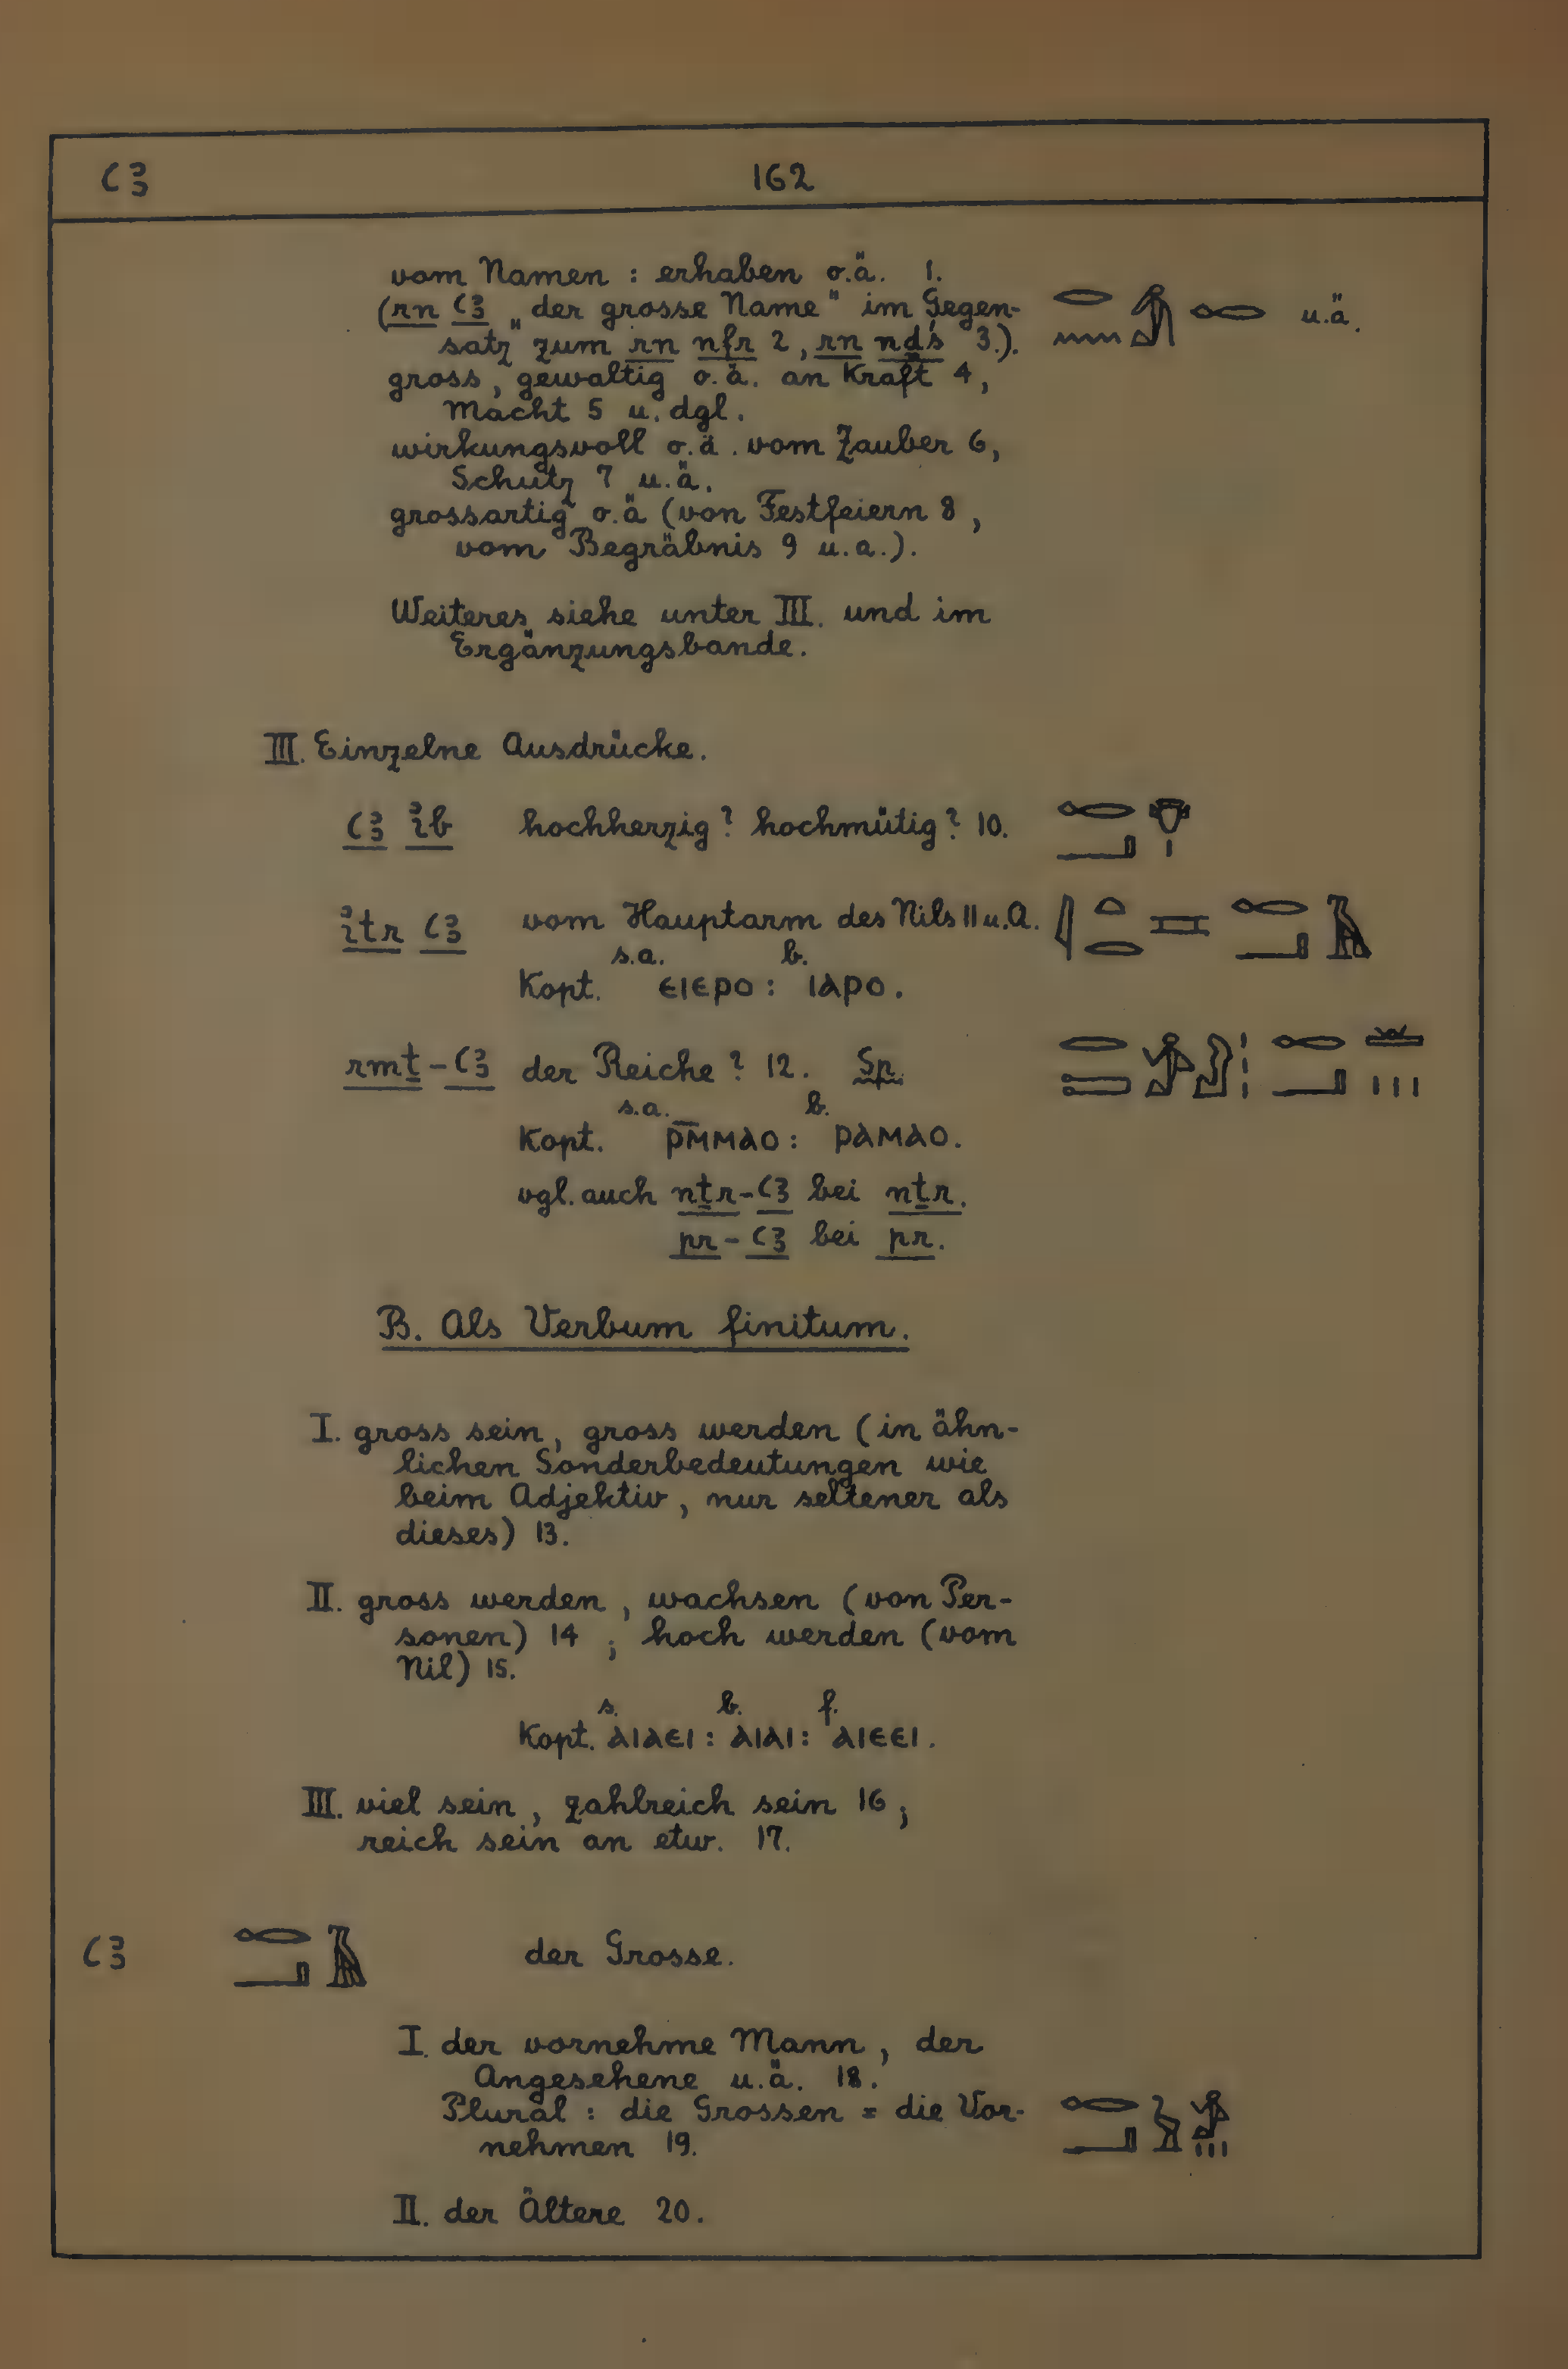 ꜥꜣ 162
vom Namen : erhaben o.ä. 1.
(rn ꜥꜣ „der grosse Name" im Gegen- u.ä.
satz zum rn nfr 2, rn nḏś 3.).
gross, gewaltig o.ä. an Kraft 4,
Macht 5 u. dgl.
wirkungsvoll o.ä. vom Zauber 6,
Schutz 7 u.ä.
grossartig o.ä (von Festfeiern 8,
vom Begräbnis 9 u.a.).
Weiteres siehe unter III. und im
Ergänzungsbande.
III. Einzelne Ausdrücke.
ꜥꜣ ꞽb hochherzig? hochmütig? 10.
ꞽtr ꜥꜣ vom Hauptarm des Nils 11 u.A.
s.a. b.
Kopt. ⲉⲓⲉⲣⲟ : ⲓⲁⲣⲟ.
rmṯ-ꜥꜣ der Reiche? 12. Sp.
s.a. b.
Kopt. ⲣⲙ̅ⲙⲁⲟ : ⲣⲁⲙⲁⲟ.
vgl. auch nṯr-ꜥꜣ bei nṯr.
pr-ꜥꜣ bei pr.
B. Als Verbum finitum.
I. gross sein, gross werden (in ähn-
lichen Sonderbedeutungen wie
beim Adjektiv, nur seltener als
dieses) 13.
II. gross werden, wachsen (von Per-
sonen) 14 ; hoch werden (vom
Nil) 15.
s. b. f.
Kopt. ⲁⲓⲁⲉⲓ : ⲁⲓⲁⲓ : ⲁⲓⲉⲉⲓ.
III. viel sein, zahlreich sein 16 ;
reich sein an etw. 17.
ꜥꜣ der Grosse.
I. der vornehme Mann, der
Angesehene u.ä. 18.
Plural : die Grossen = die Vor-
nehmen 19.
II. der Ältere 20.